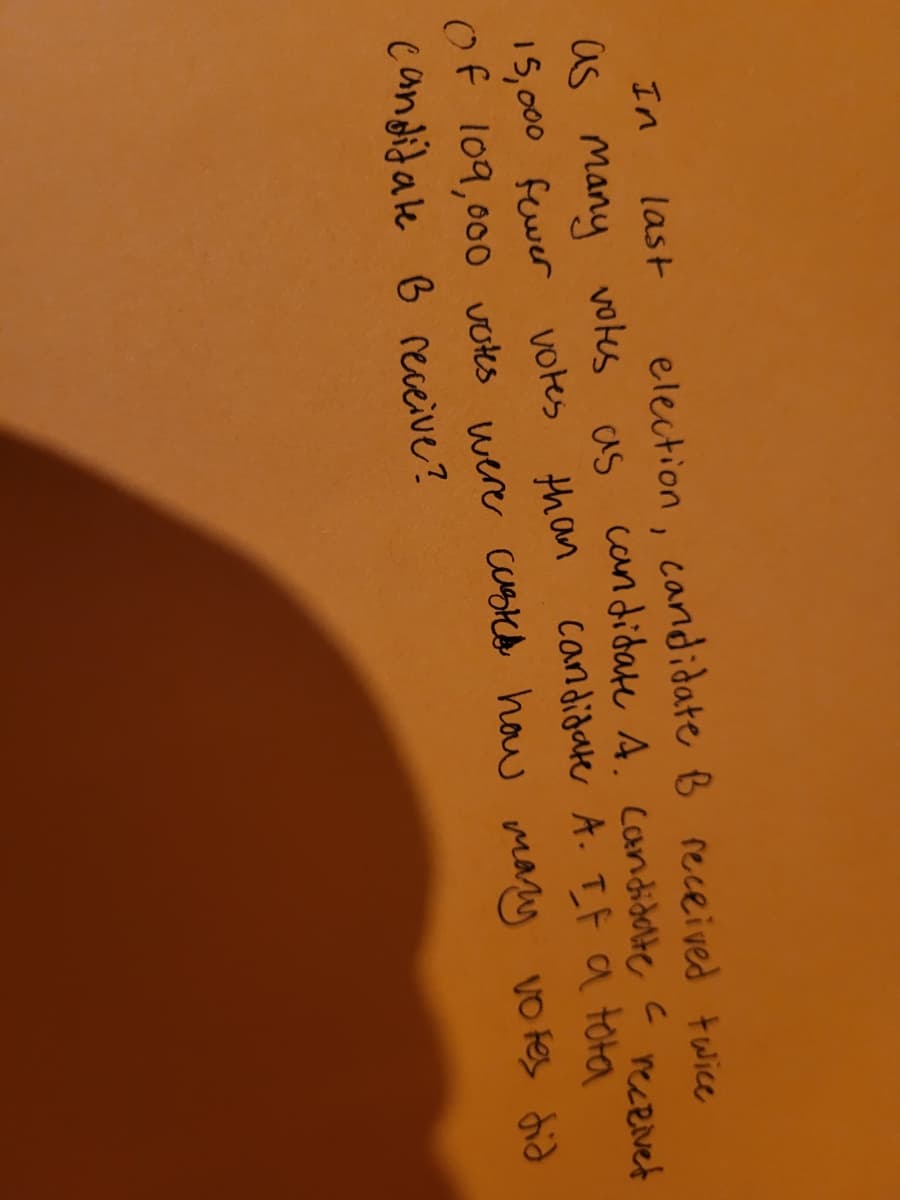 In last election, candidate B received twice
as many votes as candidate A. Candidate C received
15,000 fewer votes than candidate A. If a total
of 109,000 votes were casted how many votes did
candidate B receive?